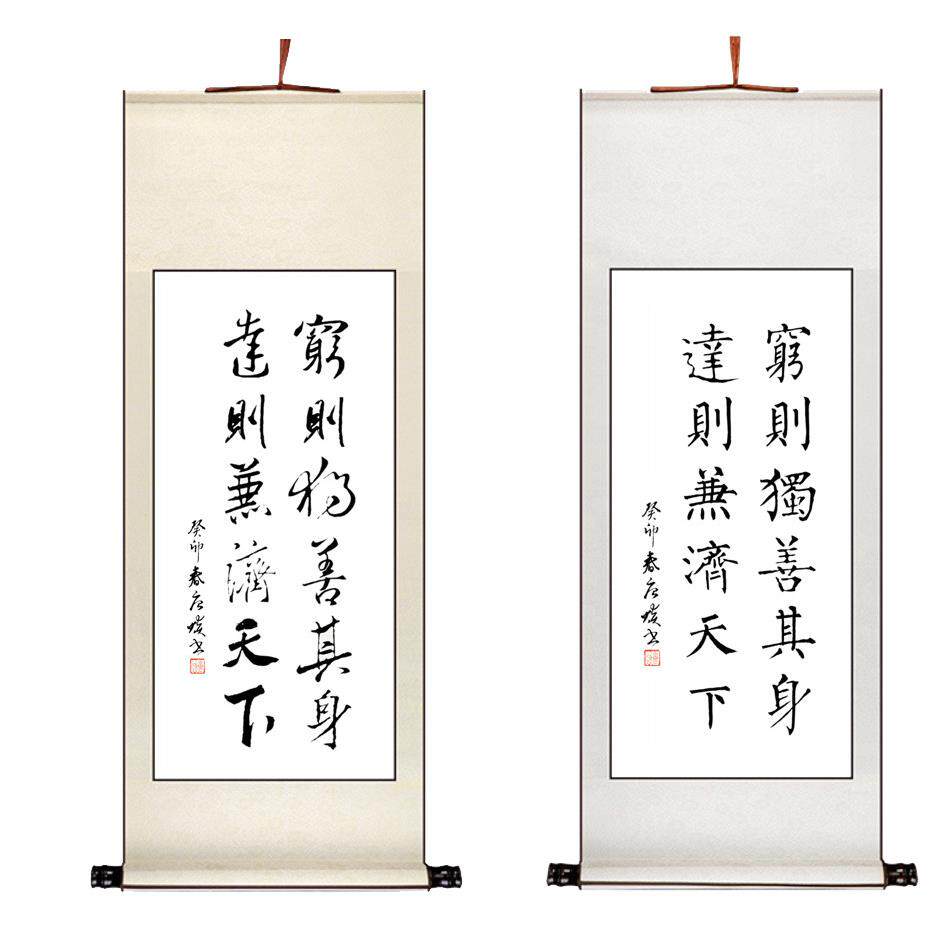 窮則獨善其身
達則兼濟天下
癸卯春
窮則獨善其身
達則兼濟天下
癸卯春